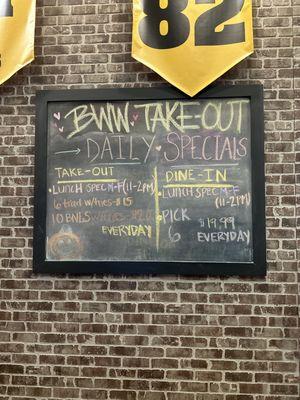 82
BWW TAKEOUT
DAILY SPECIALS
TAKE-OUT
• LUNCH SPEC M-F (11-2PM)
6 trad w/fries - $15
10 BNLS w/fries - $20
EVERYDAY
DINE-IN
• LUNCH SPEC M-F
(11-2PM)
• PICK
6
$19.99
EVERYDAY